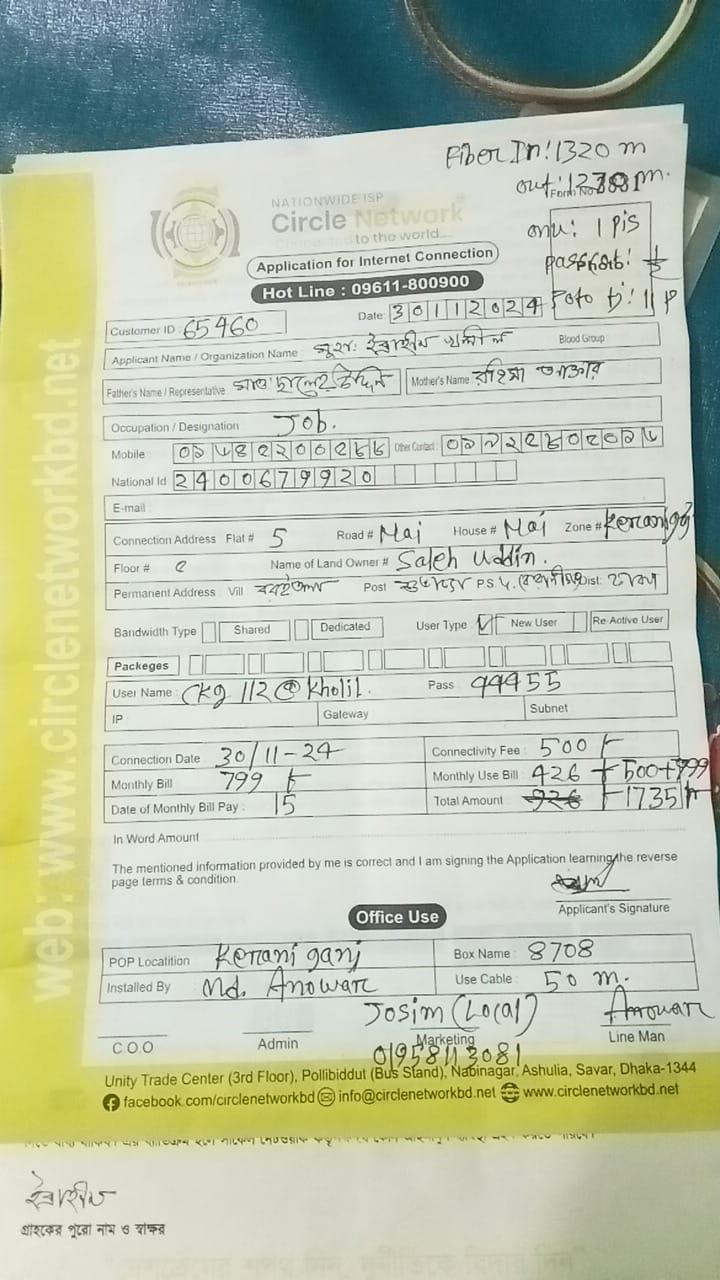 Fiber In: 1320 m
out: 1270 m.
Form No
NATIONWIDE ISP
Circle Network
Connected to the world...
onu: 1 Pis
Application for Internet Connection
Hot Line : 09611-800900
Customer ID : 65460
Date 30112024
Applicant Name / Organization Name : ইব্রাহীম খলীল Blood Group :
Father's Name / Representative Mother's Name : আক্তার
Occupation / Designation Job.
Mobile Other Contact
National Id 2400679920
E-mail
Connection Address Flat # 5 Road # Mai House # Mai Zone # Keraniganj
Floor # Name of Land Owner # Saleh Uddin.
Permanent Address Vill Post P.S Dist: ঢাকা
Bandwidth Type Shared Dedicated User Type : New User Re-Active User
Packeges
User Name : Ckg 112@kholil. Pass 99955
IP Gateway Subnet
Connection Date 30/11-24 Connectivity Fee : 500/-
Monthly Bill 799 Monthly Use Bill : 426 + 500+799
Date of Monthly Bill Pay : 15 Total Amount 926 1735
In Word Amount
The mentioned information provided by me is correct and I am signing the Application learning the reverse
page terms & condition.
Applicant's Signature
Office Use
POP Locatition Kerani ganj Box Name : 8708
Installed By Md. Anowar Use Cable : 50 m.
Josim (Local) Anowar
C.O.O Admin Marketing Line Man
01958113081
Unity Trade Center (3rd Floor), Pollibiddut (Bus Stand), Nabinagar, Ashulia, Savar, Dhaka-1344
facebook.com/circlenetworkbd info@circlenetworkbd.net www.circlenetworkbd.net
web: www.circlenetworkbd.net
ইব্রাহীম
গ্রাহকের পুরো নাম ও স্বাক্ষর